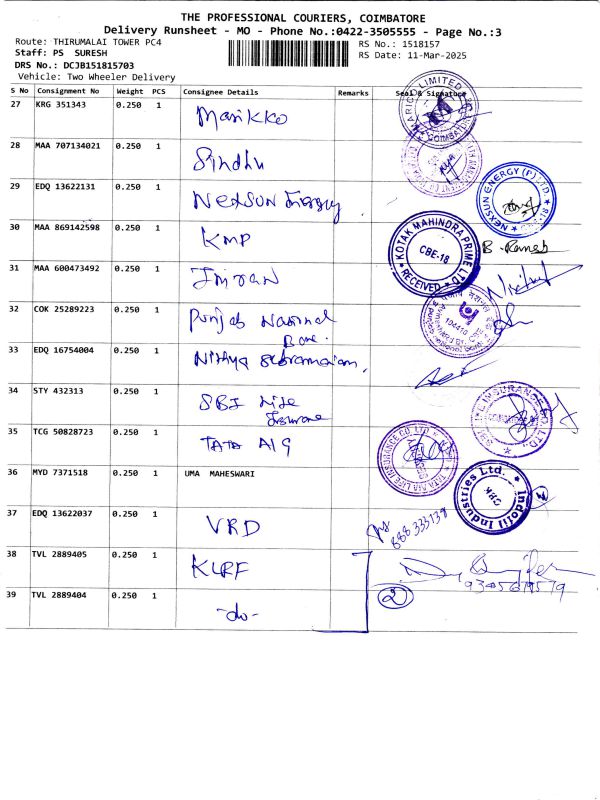 THE PROFESSIONAL COURIERS, COIMBATORE
Delivery Runsheet - MO - Phone No.:0422-3505555 - Page No.:3
Route: THIRUMALAI TOWER PC4
RS No.: 1518157
Staff: PS SURESH
RS Date: 11-Mar-2025
DRS No.: DCJB151815703
Vehicle: Two Wheeler Delivery
S No Consignment No Weight PCS Consignee Details Remarks Seal & Signature
27 KRG 351343 0.250 1 Marikko
28 MAA 707134021 0.250 1 Sindhu
29 EDQ 13622131 0.250 1 Nexsun Energy
NEXSUN ENERGY (P) LTD.
30 MAA 869142598 0.250 1 KMP
KOTAK MAHINDRA PRIME LTD.
CBE-18
RECEIVED
B. Ramesh
31 MAA 600473492 0.250 1 Imran
32 COK 25289223 0.250 1 Punjab National
33 EDQ 16754004 0.250 1 Nithya Subramaniam,
34 STY 432313 0.250 1 SBI Life
Insurance
35 TCG 50828723 0.250 1 TATA AIG
36 MYD 7371518 0.250 1 UMA MAHESWARI
Indofil Industries Ltd.
CBE
37 EDQ 13622037 0.250 1 VRD
888 333138
38 TVL 2889405 0.250 1 KLRF
39 TVL 2889404 0.250 1 -do-
2